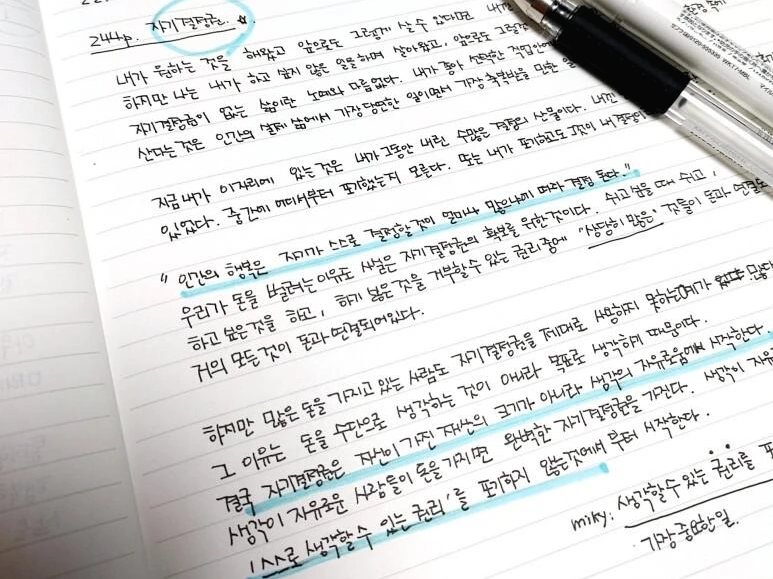 244p. 자기결정권. ☆.
내가 원하는 것을 해왔고 앞으로도 그렇게 살 수 있다면, 내
하지만 나는 내가 하고 싶지 않은 일을 하며 살아왔고, 앞으로도
자기결정권이 없는 삶이란 노예와 다름없다. 내가 좋아 선택한 직업
산다는 것은 인간의 실제 삶에서 가장 당연한 일이면서 가장 축복받을 만한 일
지금 내가 이 자리에 있는 것은 내가 그동안 내린 수많은 결정의 산물이다.
있었다. 중간에 어디서부터 포기했는지 모른다. 또는 내가 포기하고도 그것이 내 결정이
" 인간의 행복은 자기가 스스로 결정할 것이 얼마나 많으냐에 따라 결정된다."
우리가 돈을 벌려는 이유도 사실은 자기결정권의 확보를 위한것이다. 쉬고싶을 때 쉬고,
하고 싶은것을 하고, 하기 싫은것을 거부할 수 있는 권리 중에 "상당히 많은" 것들이 돈과 연결
거의 모든 것이 돈과 연결되어있다.
하지만 많은 돈을 가지고 있는 사람도 자기결정권을 제대로 사용하지 못하는 예가 많다
그 이유는 돈을 수단으로 생각하는 것이 아니라 목표로 생각하기 때문이다.
결국 자기결정권은 자신이 가진 재산의 크기가 아니라 생각의 자유로움에서 시작한다.
생각이 자유로운 사람들이 돈을 가지면 완벽한 자기결정권을 가진다. 생각의 자유
'스스로 생각할 수 있는 권리'를 포기하지 않는것에서 부터 시작한다.
miky: 생각할 수 있는 권리를 포
가장 중요한 일.